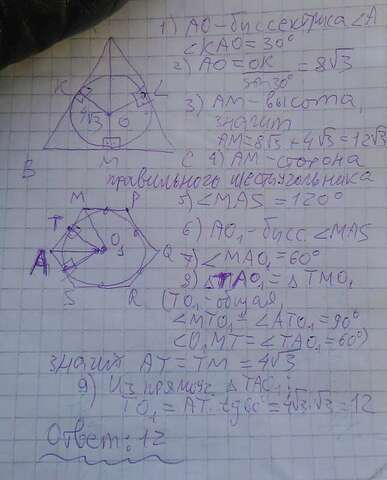 1) AO-биссектриса ∠A
∠KAO=30°
2) AO=OK/sin30°=8√3
3) AM-высота,
значит
AM=8√3+4√3=12√3
4) AM-сторона
правильного шестиугольника
K
L
4√3
O
B
M
C
5) ∠MAS=120°
6) AO₁-бисс. ∠MAS
7) ∠MAO₁=60°
8) △TAO₁=△TMO₁
(TO₁-общая,
∠MTO₁=∠ATO₁=90°
∠O₁MT=∠TAO₁=60°)
M
P
T
O₁
A
Q
S
R
значит AT=TM=4√3
9) Из прямоуг △TAO₁:
TO₁=AT·tg60°=4√3·√3=12
Ответ: 12